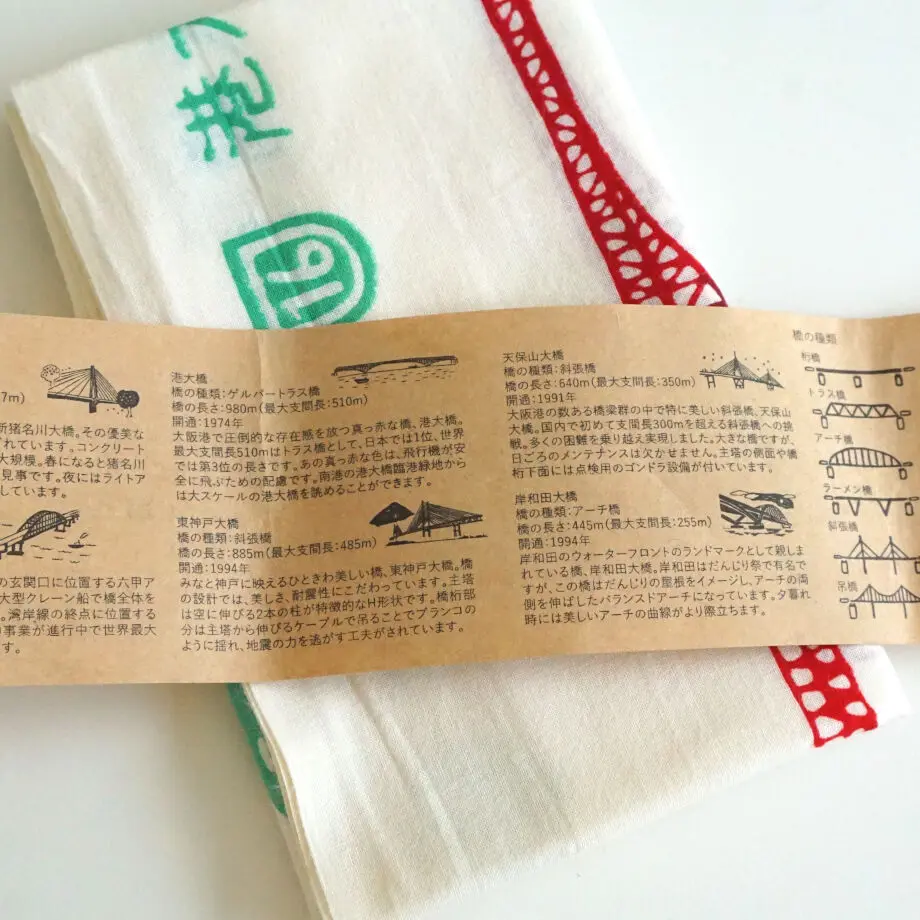 港
16
7m)
新猪名川大橋。その優美な
れています。コンクリート
大規模。春になると猪名川
見事です。夜にはライトア
しています。
の玄関口に位置する六甲ア
大型クレーン船で橋全体を
。湾岸線の終点に位置する
事業が進行中で世界最大
す。
港大橋
橋の種類:ゲルバートラス橋
橋の長さ:980m(最大支間長:510m)
開通:1974年
大阪港で圧倒的な存在感を放つ真っ赤な橋、港大橋。
最大支間長510mはトラス橋として、日本では1位、世界
では第3位の長さです。あの真っ赤な色は、飛行機が安
全に飛ぶための配慮です。南港の港大橋臨港緑地から
は大スケールの港大橋を眺めることができます。
東神戸大橋
橋の種類:斜張橋
橋の長さ:885m(最大支間長:485m)
開通:1994年
みなと神戸に映えるひときわ美しい橋、東神戸大橋。橋
の設計では、美しさ、耐震性にこだわっています。主塔
は空に伸びる2本の柱が特徴的なH形状です。橋桁部
分は主塔から伸びるケーブルで吊ることでブランコの
ように揺れ、地震の力を逃がす工夫がされています。
天保山大橋
橋の種類:斜張橋
橋の長さ:640m(最大支間長:350m)
開通:1991年
大阪港の数ある橋梁群の中で特に美しい斜張橋、天保山
大橋。国内で初めて支間長300mを超える斜張橋への挑
戦。多くの困難を乗り越え実現しました。大きな橋ですが、
日ごろのメンテナンスは欠かせません。主塔の側面や橋
桁下面には点検用のゴンドラ設備が付いています。
岸和田大橋
橋の種類:アーチ橋
橋の長さ:445m(最大支間長:255m)
開通:1994年
岸和田のウォーターフロントのランドマークとして親しま
れている橋、岸和田大橋。岸和田はだんじり祭で有名で
すが、この橋はだんじりの屋根をイメージし、アーチの両
側を伸ばしたバランスドアーチになっています。夕暮れ
時には美しいアーチの曲線がより際立ちます。
橋の種類
桁橋
トラス橋
アーチ橋
ラーメン橋
斜張橋
吊橋